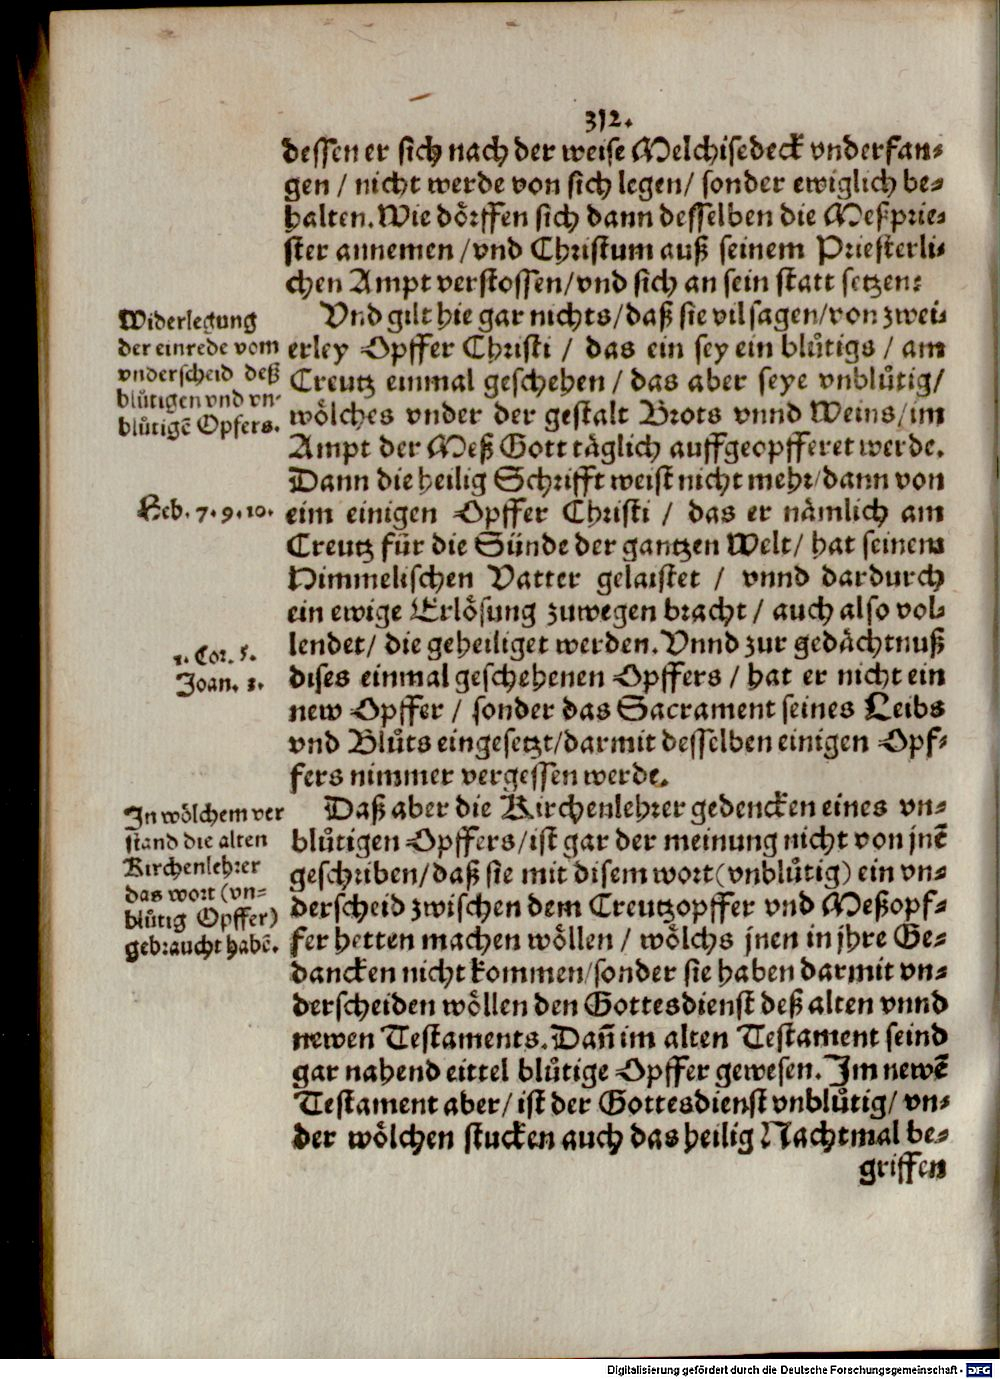 312.
dessen er sich nach der weise Melchisedeck vnderfan-
gen / nicht werde von sich legen/ sonder ewiglich be-
halten. Wie dörffen sich dann desselben die Meßprie-
ster annemen /vnd Christum auß seinem Priesterli-
chen Ampt verstossen/vnd sich an sein statt setzen?
Vnd gilt hie gar nichts/daß sie vil sagen/von zwei-
erley Opffer Christi / das ein sey ein blůtigs / am
Creutz einmal geschehen / das aber seye vnblůtig/
wölches vnder der gestalt Brots vnnd Weins/im
Ampt der Meß Gott täglich auffgeopfferet werde.
Dann die heilig Schrifft weist nicht mehr/dann von
eim einigen Opffer Christi / das er nämlich am
Creutz für die Sünde der gantzen Welt/ hat seinem
Himmelischen Vatter gelaistet / vnnd dardurch
ein ewige Erlösung zuwegen bracht / auch also vol-
lendet/ die geheiliget werden. Vnnd zur gedächtnuß
dises einmal geschehenen Opffers / hat er nicht ein
new Opffer / sonder das Sacrament seines Leibs
vnd Blůts eingesetzt/darmit desselben einigen Opf-
fers nimmer vergessen werde.
Daß aber die Kirchenlehrer gedencken eines vn-
blůtigen Opffers/ist gar der meinung nicht von jnē
geschriben/daß sie mit disem wort (vnblůtig) ein vn-
derscheid zwischen dem Creutzopffer vnd Meßopf-
fer hetten machen wöllen / wölchs jnen in jhre Ge-
dancken nicht kommen/sonder sie haben darmit vn-
derscheiden wöllen den Gottesdienst deß alten vnnd
newen Testaments. Dañ im alten Testament seind
gar nahend eittel blůtige Opffer gewesen. Im newē
Testament aber/ ist der Gottesdienst vnblůtig/ vn-
der wölchen stucken auch das heilig Nachtmal be-
griffen
Widerlegung
der einrede vom
vnderscheid deß
blůtigen vnd vn-
blůtigē Opfers.
Heb. 7. 9. 10.
1. Cor. 5.
Joan. 1.
In wölchem ver
stand die alten
Kirchenlehrer
das wort (vn-
blůtig Opffer)
gebraucht habē.
Digitalisierung gefördert durch die Deutsche Forschungsgemeinschaft - DFG